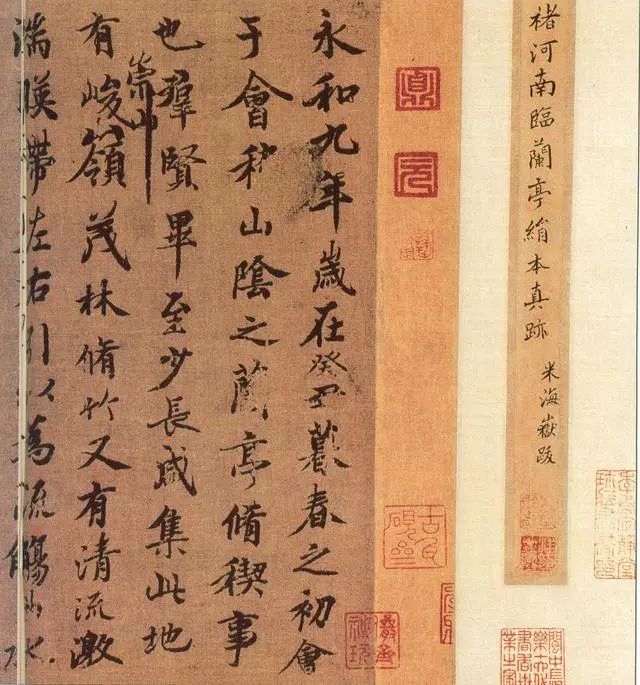 褚河南臨蘭亭絹本真跡
米海嶽跋
永和九年歲在癸丑暮春之初會
于會稽山陰之蘭亭脩稧事
也羣賢畢至少長咸集此地
有崇山峻嶺茂林脩竹又有清流激
湍暎帶左右引以為流觴曲水